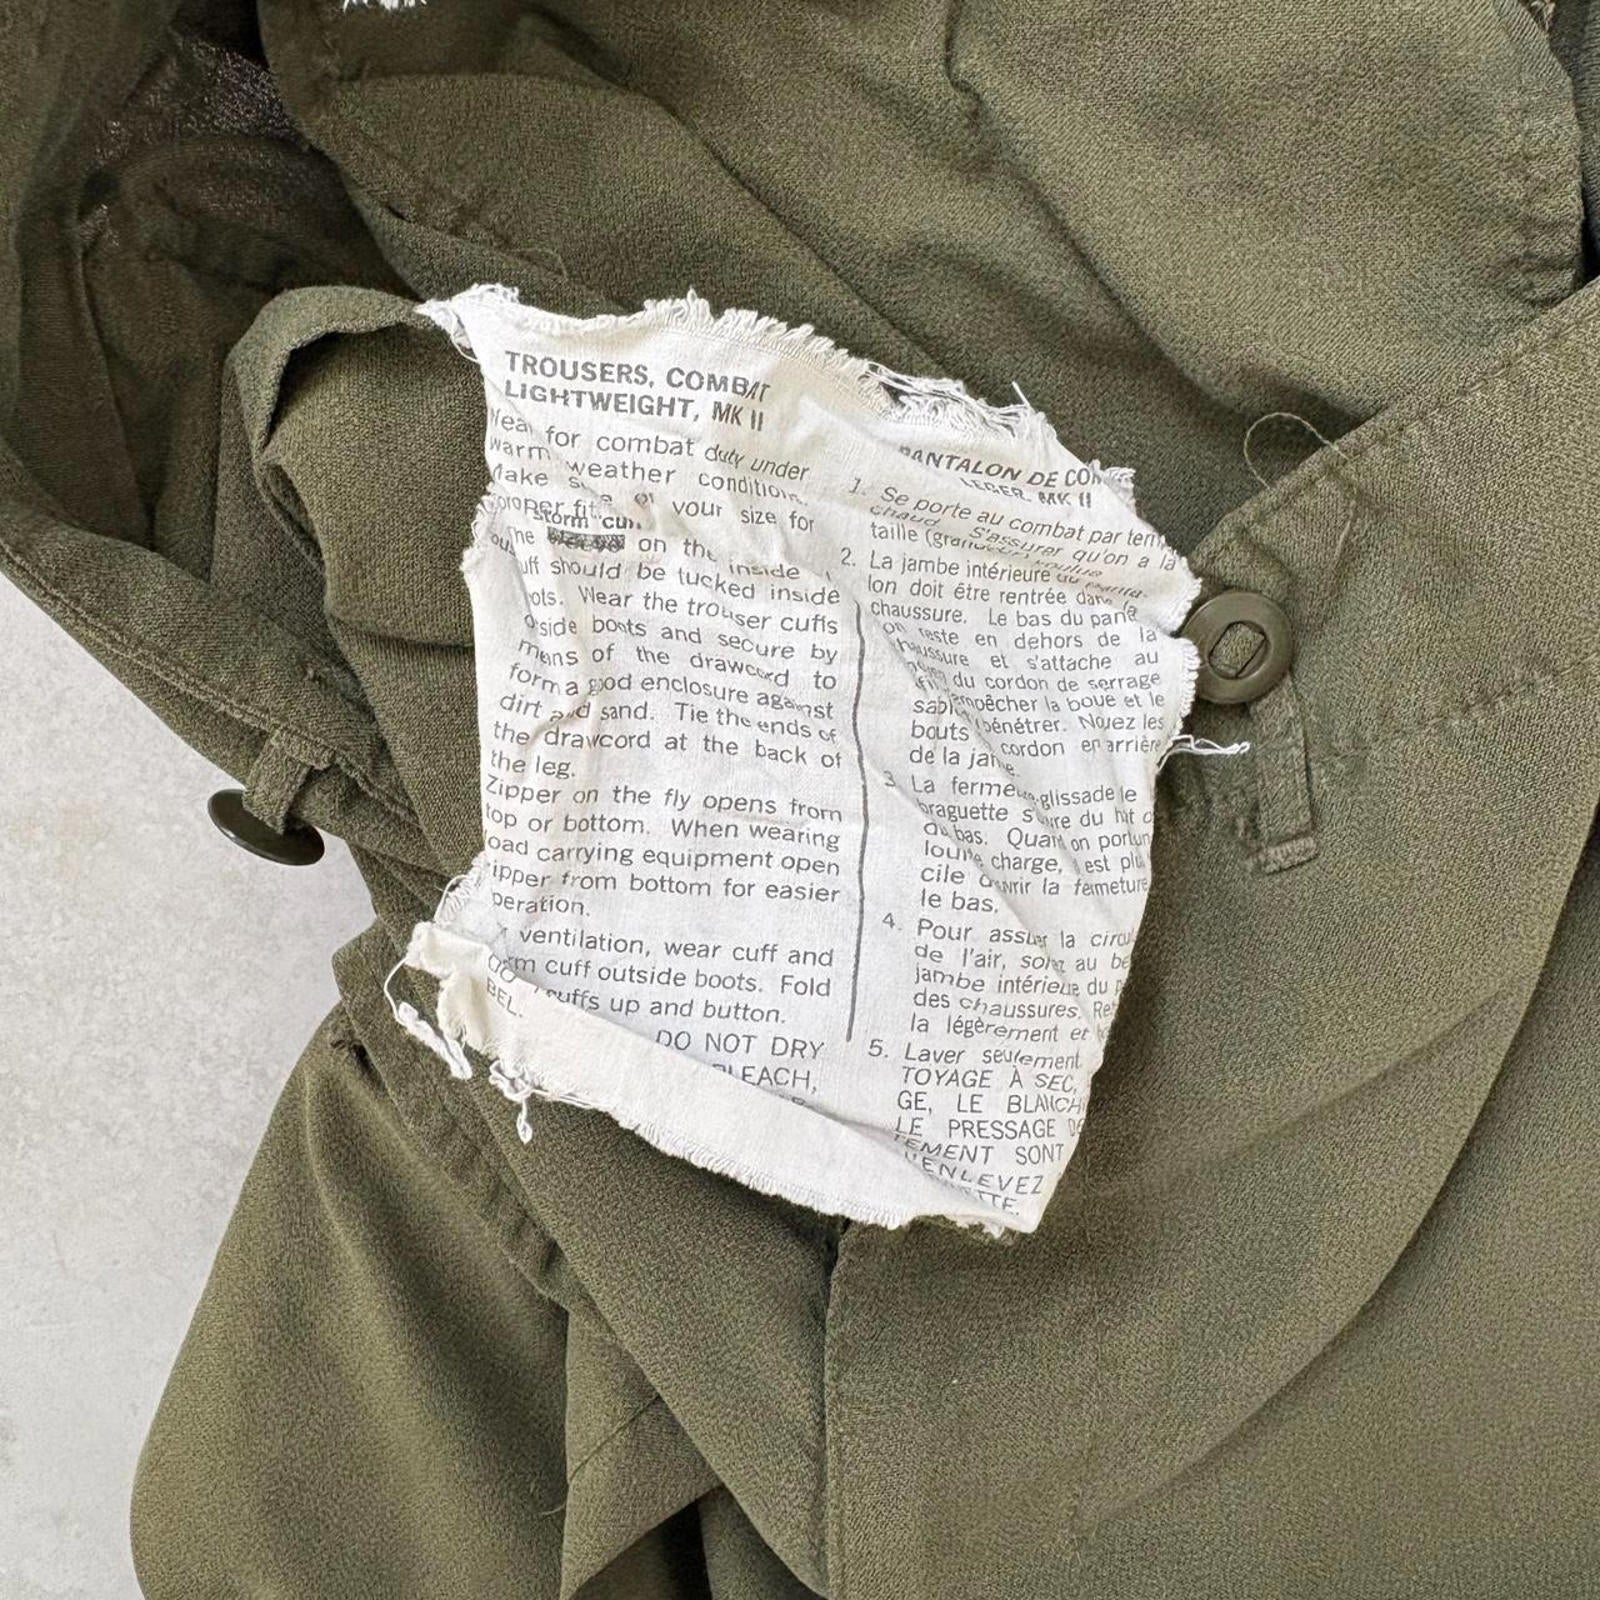 TROUSERS, COMBAT
LIGHTWEIGHT, MK II
for combat duty under
warm weather conditions.
Make of your size for
proper fit.
storm cuff
The on the inside
uff should be tucked inside
ots. Wear the trouser cuffs
side boots and secure by
means of the drawcord to
form a good enclosure against
dirt and sand. Tie the ends of
the drawcord at the back of
the leg.
Zipper on the fly opens from
top or bottom. When wearing
oad carrying equipment open
ipper from bottom for easier
peration.
ventilation, wear cuff and
rm cuff outside boots. Fold
cuffs up and button.
DO NOT DRY
BLEACH,
BEL.
PANTALON DE COM
LEGER, MK II
1. Se porte au combat par tem
chaud. S'assurer qu'on a la
taille
2. La jambe intérieure du panta-
lon doit être rentrée dans la
chaussure. Le bas du pantal
on reste en dehors de la
chaussure et s'attache au
du cordon de serrage
empêcher la boue et le
sable pénétrer. Nouez les
bouts cordon en arrière
de la jambe.
3. La fermeture-glissade le
braguette s'ouvre du haut o
du bas. Quand on portun
lourde charge, est plu
cile ouvrir la fermeture
le bas.
4. Pour assurer la circu
de l'air, au be
jambe intérieure du p
des chaussures. Re
la légèrement et
5. Laver seulement
TOYAGE À SEC,
GE, LE BLANCH
LE PRESSAGE DE
TEMENT SONT
ENLEVEZ
ETTE.